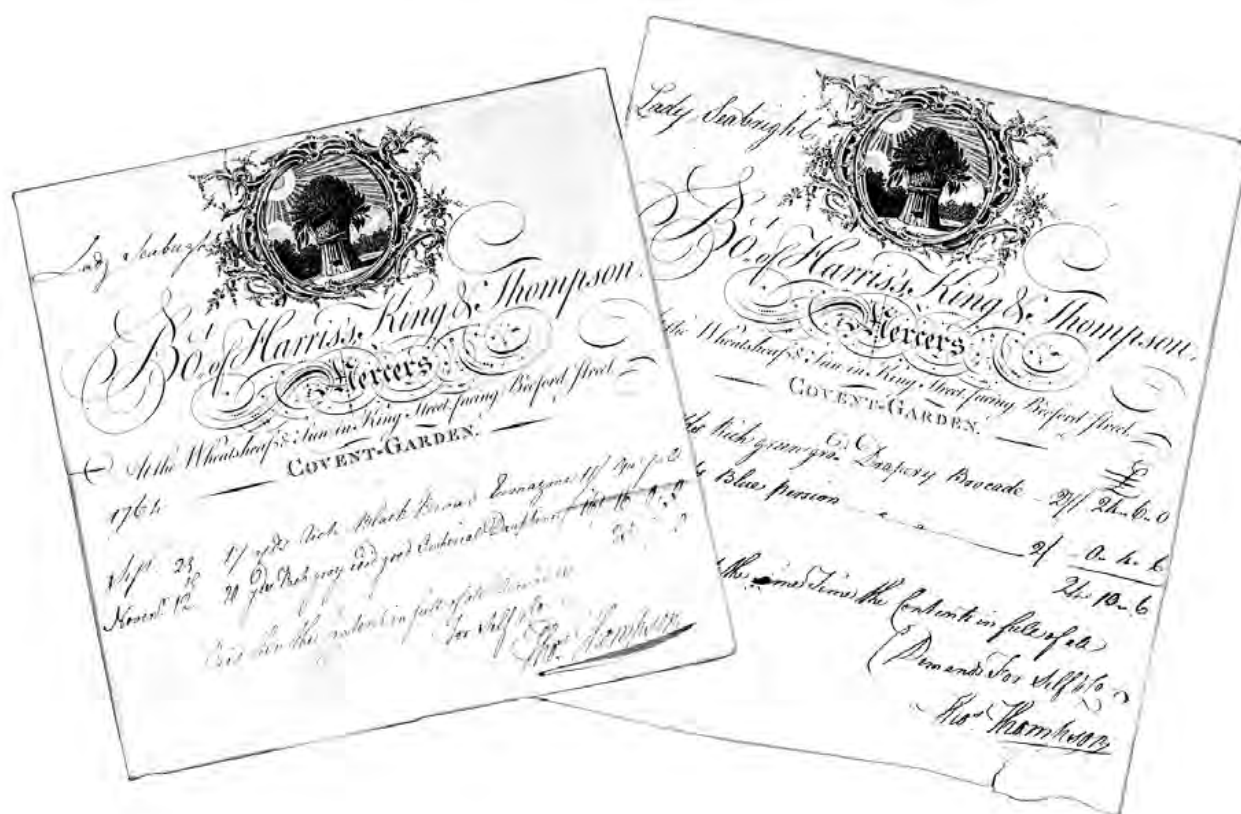 Lady Seabright
Bot. of Harris's, King & Thompson.
Mercers
At the Wheatsheaf & Sun in King Street, facing Bedford Street
COVENT-GARDEN.
1764
Sept. 23 17 yds Rich Black
Novemr. 12 20 yds Rich
in full of all
For Self & Co
Thos. Thompson
Lady Seabright
Bot. of Harris's, King & Thompson.
Mercers
the Wheatsheaf & Sun in King Street, facing Bedford Street
COVENT-GARDEN.
£
Rich Drapery Brocade - 27/ 24 . 6 . 0
Blue persian 2/ - 0 . 4 . 6
24 . 10 . 6
the same Time the Contents in full of all
Demands For Self & Co
Thos. Thompson